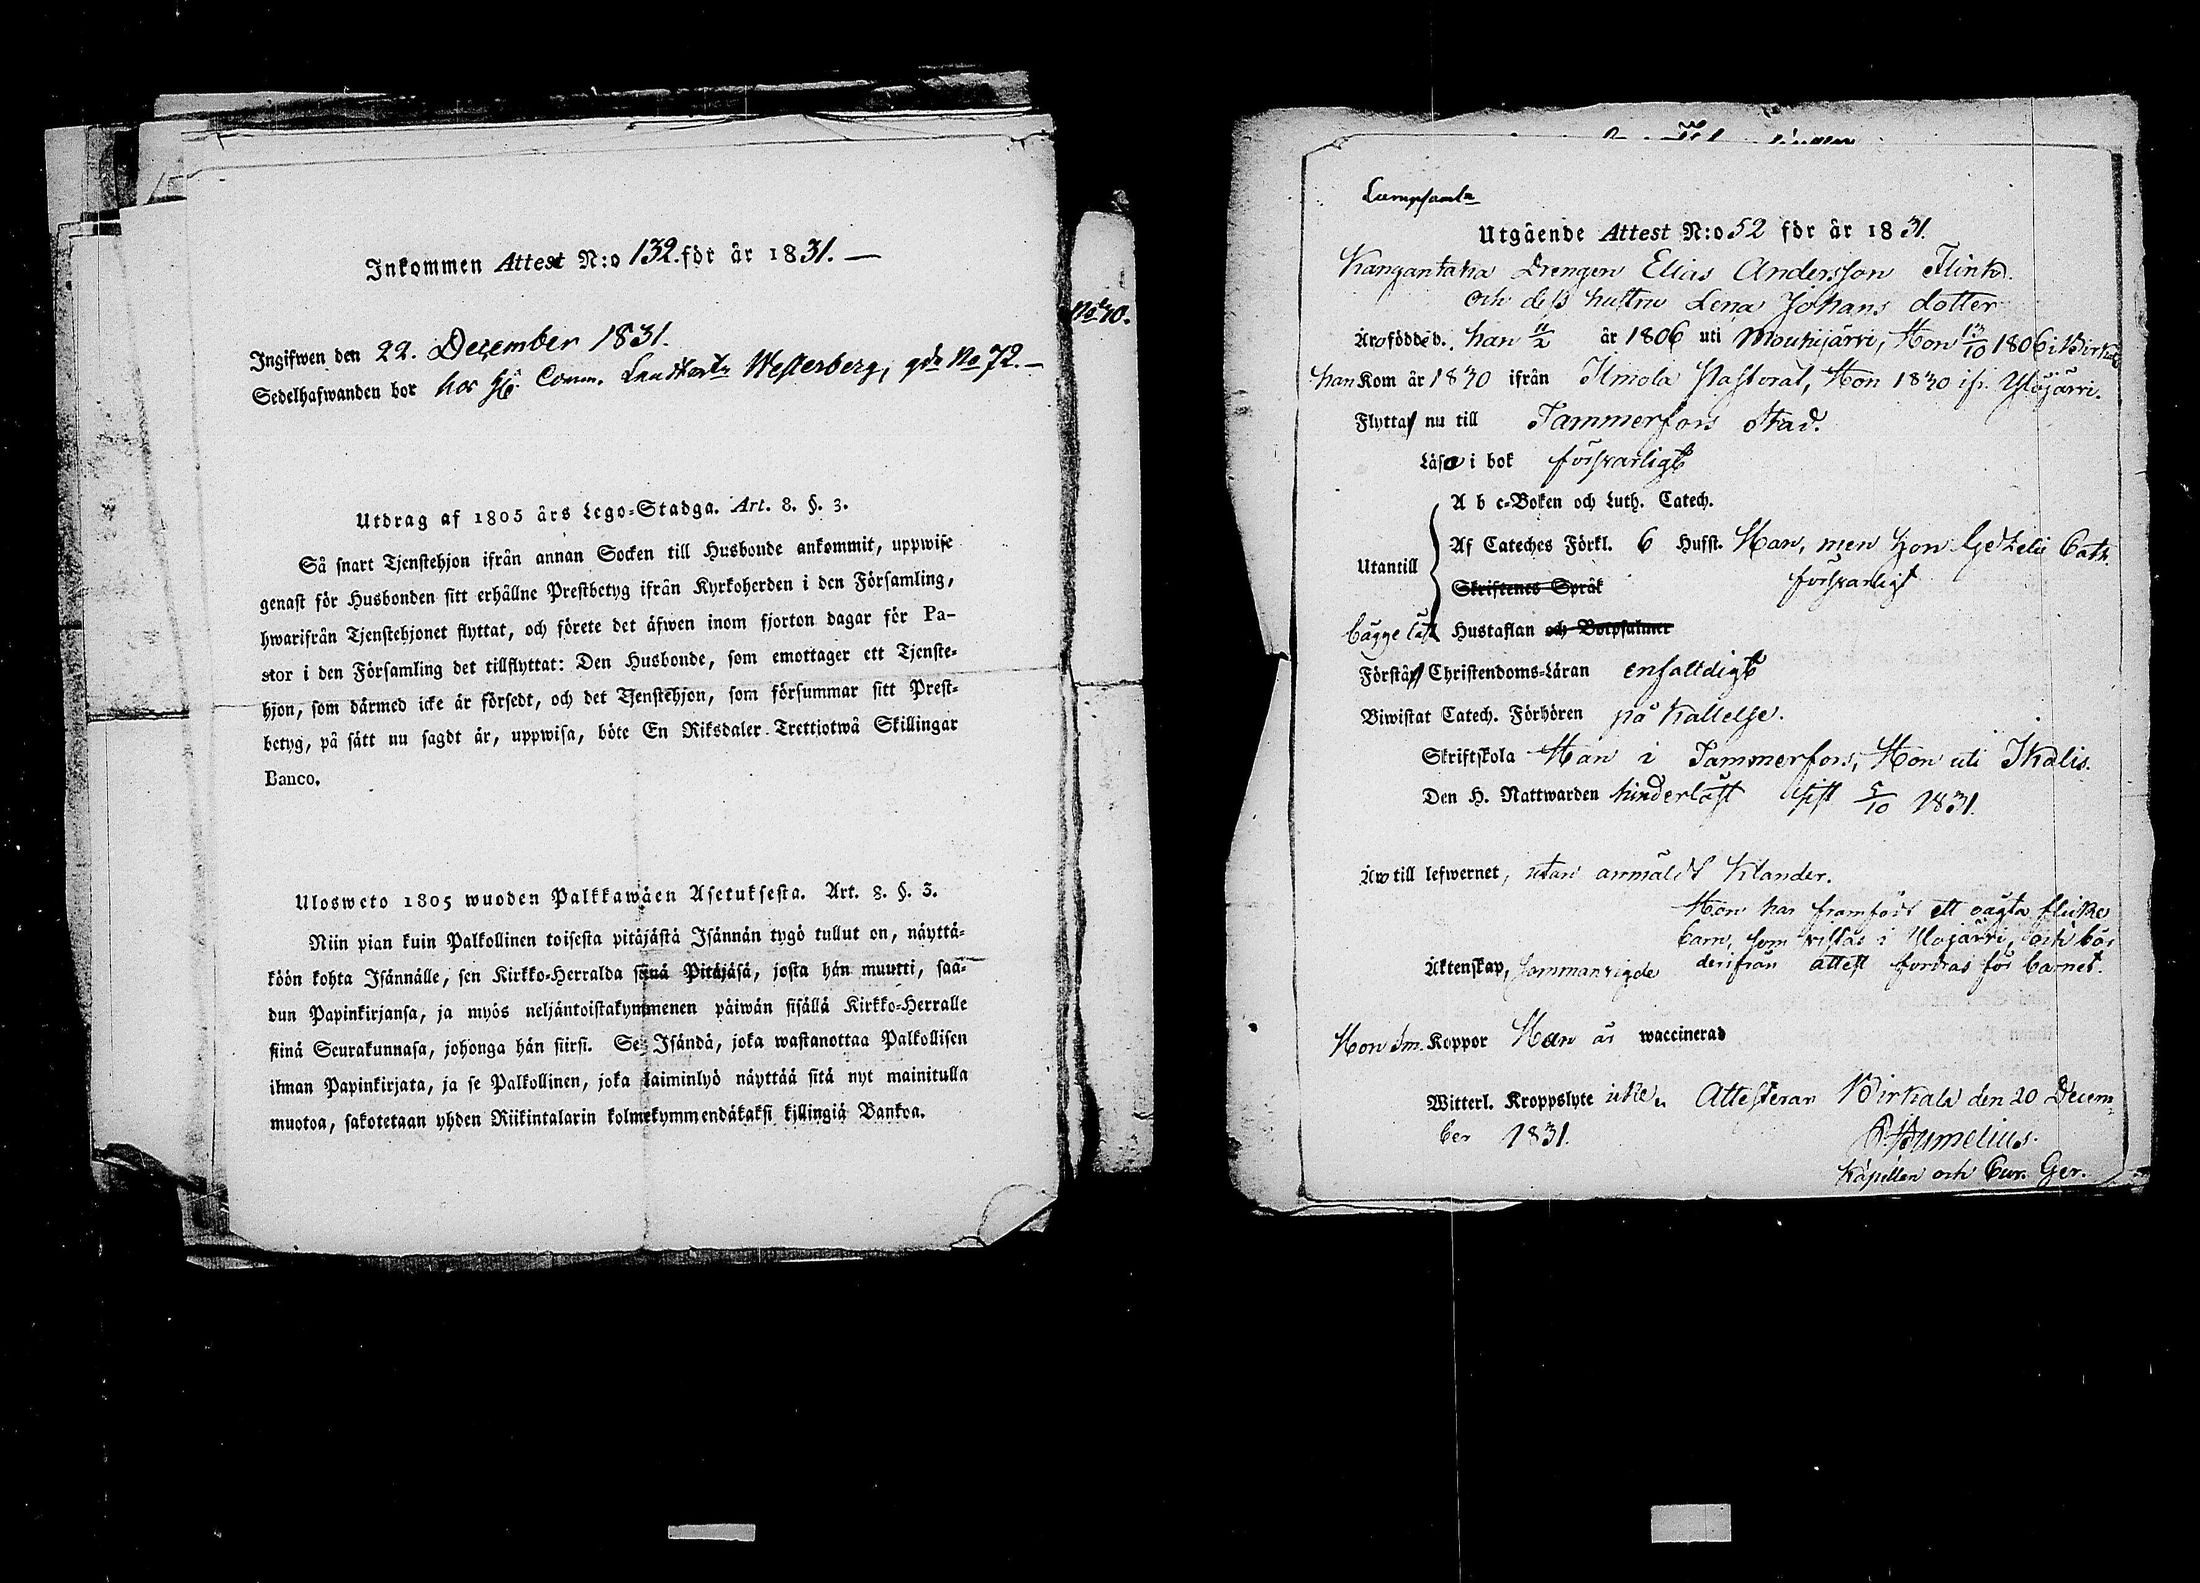 Inkommen Attest N:o 132. för år 1831. —
Ingifwen den 22. December 1831.
Sedelhafwanden bor hos Hr Comm. Landtmtn Westerberg, gdn No 72. —
Utdrag af 1805 års Lego-Stadga. Art. 8. §. 3.
Så snart Tjenstehjon ifrån annan Socken till Husbonde ankommit, uppwise
genast för Husbonden sitt erhållne Prestbetyg ifrån Kyrkoherden i den Församling,
hwarifrån Tjenstehjonet flyttat, och förete det äfwen inom fjorton dagar för Pa-
stor i den Församling det tillflyttat: Den Husbonde, som emottager ett Tjenste-
hjon, som därmed icke är försedt, och det Tjenstehjon, som försummar sitt Prest-
betyg, på sätt nu sagdt är, uppwisa, böte En Riksdaler Trettiotwå Skillingar
Banco.
Ulosweto 1805 wuoden Palkkawäen Asetuksesta. Art. 8. §. 3.
Niin pian kuin Palkollinen toisesta pitäjästä Isännän tygö tullut on, näyttä-
köön kohta Isännälle, sen Kirkko-Herralda siinä Pitäjäsä, josta hän muutti, saa-
dun Papinkirjansa, ja myös neljäntoistakymmenen päiwän sisällä Kirkko-Herralle
siinä Seurakunnasa, johonga hän siirsi. Se Isändä, joka wastanottaa Palkollisen
ilman Papinkirjata, ja se Palkollinen, joka laiminlyö näyttää sitä nyt mainitulla
muotoa, sakotetaan yhden Riikintalarin kolmekymmendäkaksi killingiä Bankoa.
No 40.
Utgående Attest N:o 52 för år 1831.
Kangantaka Drengen Elias Andersson Flink
och dess hustru Lena Johans dotter
Äro födde d. han 11/2 år 1806 uti Mouhijärvi, Hon 13/10 1806 i Birkala
han Kom år 1830 ifrån Ilmola Pastorat, Hon 1830 ifr. Ylöjärvi.
Flyttas nu till Tammerfors Stad.
Läsa i bok försvarligt
A b c-Boken och Luth. Catech.
Utantill Af Cateches Förkl. 6 Hufst. Han, men hon Gezelii Cath.
Skriftenes Språk försvarligt
bägge läst Hustaflan och Botpsalmer
Förstå Christendoms-Läran enfaldigt
Biwistat Catech. Förhören på kallelse.
Skriftskola Han i Tammerfors, Hon uti Ikalis.
Den H. Nattwarden hinderlöst sist 5/10 1831.
Äro till lefwernet, utan anmäldt klander.
Hon har framfödt ett oägta flicke
barn, som vistas i Ylöjärvi, och bör
Äktenskap, sammanvigde derifrån attest fordras för barnet.
Hon sm. Koppor Han är waccinerad
Witterl. Kroppslyte icke. Attesterar Birkala den 20 Decem-
ber 1831.
Kapellan och Cur. Ger.